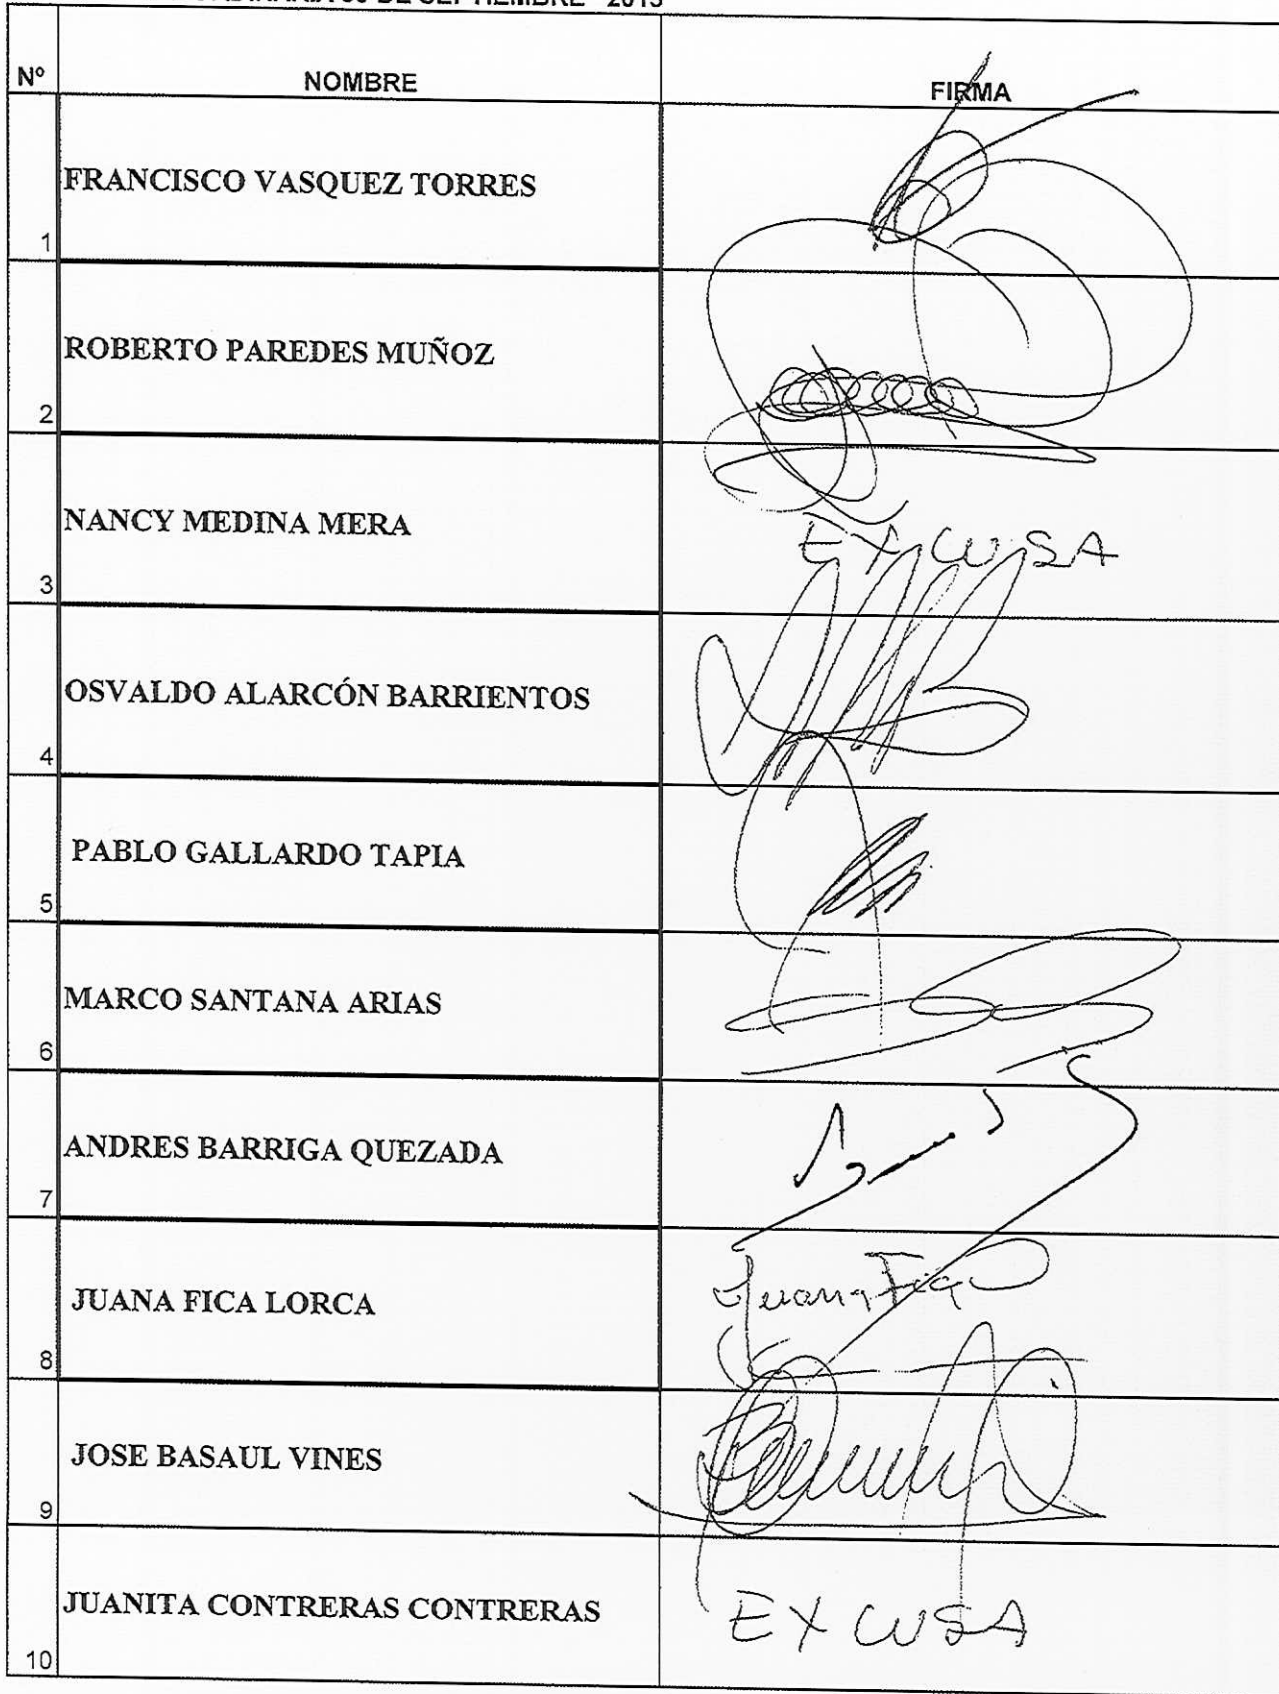 DE SEPTIEMBRE - 2015
Nº NOMBRE FIRMA
1 FRANCISCO VASQUEZ TORRES
2 ROBERTO PAREDES MUÑOZ
3 NANCY MEDINA MERA EXCUSA
4 OSVALDO ALARCÓN BARRIENTOS
5 PABLO GALLARDO TAPIA
6 MARCO SANTANA ARIAS
7 ANDRES BARRIGA QUEZADA
8 JUANA FICA LORCA Juana Fica
9 JOSE BASAUL VINES
10 JUANITA CONTRERAS CONTRERAS EXCUSA